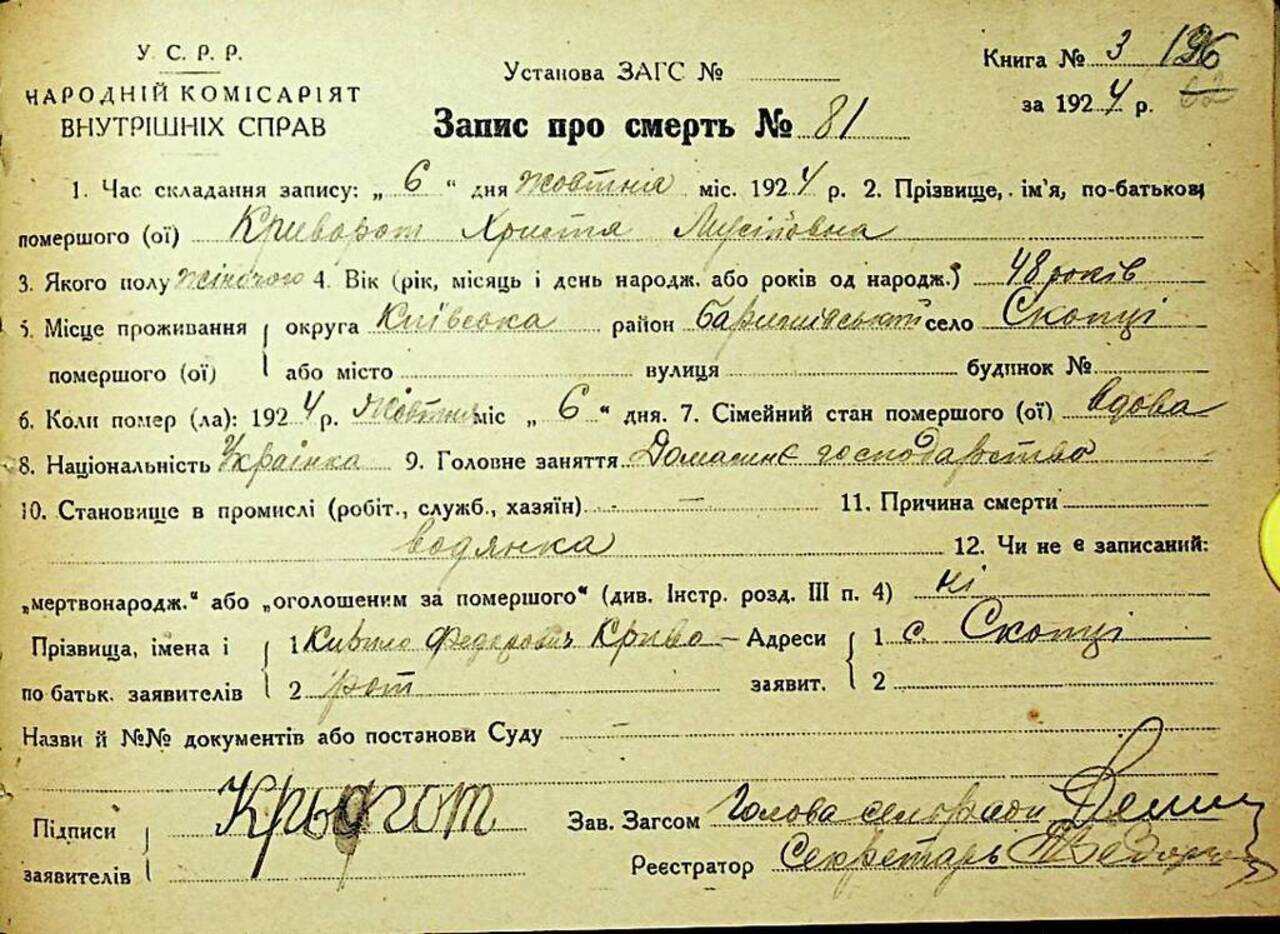 У. С. Р. Р.
НАРОДНІЙ КОМІСАРІЯТ
ВНУТРІШНІХ СПРАВ
Установа ЗАГС №
Книга № 3 126
за 1924 р. 62
Запис про смерть № 81
1. Час складання запису: „ 6 “ дня жовтня міс. 1924 р. 2. Прізвище, ім'я, по-батькові
помершого (ої) Криворот Христя Мусіївна
3. Якого полу жіночого 4. Вік (рік, місяць і день народж. або років од народж.) 48 років
5. Місце проживання округа Київська район Баришівський село Скопці
помершого (ої) або місто вулиця будинок №
6. Коли помер (ла): 1924 р. Жовтня міс „ 6 “ дня. 7. Сімейний стан помершого (ої) вдова
8. Національність Українка 9. Головне заняття Домашнє господарство
10. Становище в промислі (робіт., служб., хазяїн) — 11. Причина смерти
водянка 12. Чи не є записаний:
„мертвонародж.“ або „оголошеним за помершого“ (див. Інстр. розд. III п. 4) ні
Прізвища, імена і 1 Федорович Криво– Адреси 1 с. Скопці
по батьк. заявителів 2 рот заявит. 2
Назви й №№ документів або постанови Суду —
Підписи Зав. Загсом Голова сельради
заявителів Реєстратор Секретарь